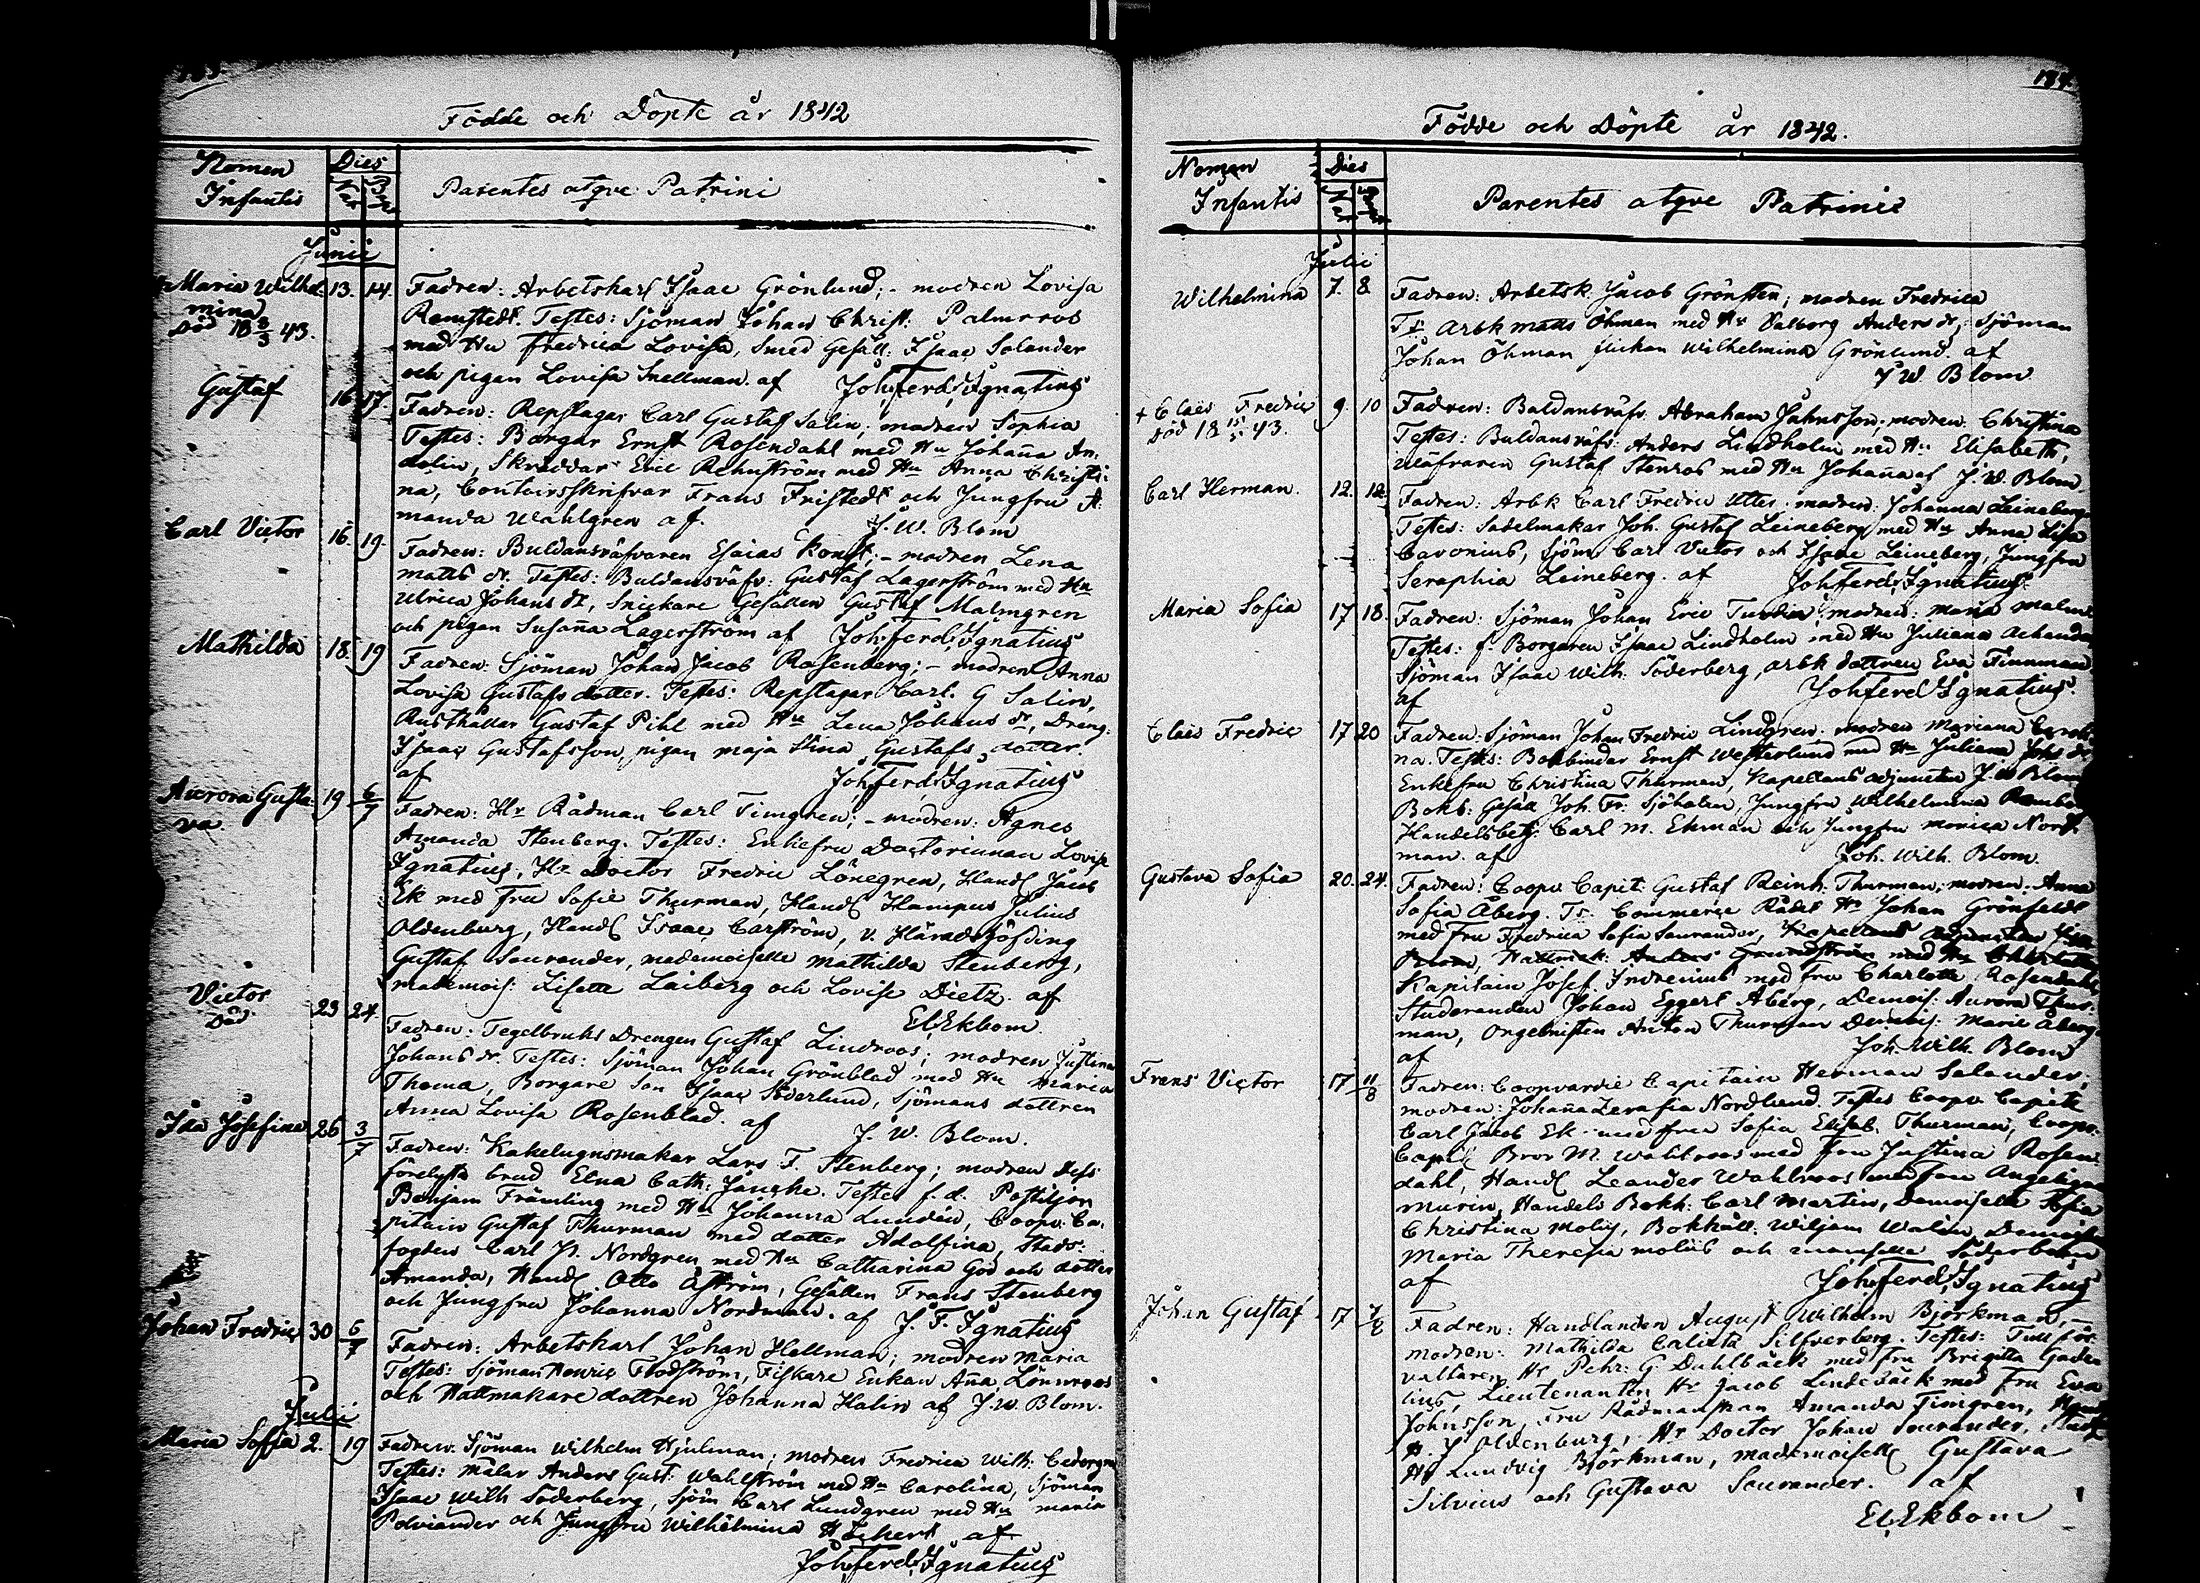 Födde och Döpte år 1842
Nomen
Infantis
Dies
Parentes atqve Patrini
Junii
Maria Wilhel- 13. 14. Fadren: Arbetskarl Isaac Grönlund; - modren Lovisa
mina
Död 18 8/3 43.
Testes: Sjöman Johan Christ: Palmroos
med Hu Fredrica Lovisa, Smed Gesäll: Isaac Solander
och pigan Lovisa Snellman. af Joh. Ferd. Ignatius
Gustaf 16. 17. Fadren: Repslagar Carl Gustaf Salin; modren Sophia
Testes: Borgar Ernst Rosendahl med Hu Johaña An-
dolin, Skräddar Eric Rehnström med Hu Anna Christi-
na, Contoirsskrifvar Frans Fristedt och Jungfru A-
manda Wahlgren af. J. W. Blom
Carl Victor 16. 19. Fadren: Buldansväfvaren Esaias Konst; - modren Lena
Matts dr. Testes: Buldansväfv: Gustaf Lagerström med Hu
Ulrica Johans dr, Snickare Gesällen Gustaf Malmgren
och pigan Susaña Lagerström af Joh. Ferd. Ignatius
Mathilda 18. 19 Fadren: Sjöman Johan Jacob Rosenberg; - modren Anna
Lovisa Gustafs dotter. Testes: Repslagar Carl. G Salin,
Rusthållar Gustaf Pihl med Hu Lena Johans dr, Dreng:
Isaac Gustafsson, pigan Maja Stina Gustafs dotter
af Joh. Ferd. Ignatius
Aurora Gusta- 19 6/7 Fadren: Hr Rådman Carl Timgren; - modren: Agnes
va.
Amanda Stenberg. Testes: Enkefru Doctorinnan Lovisa
Ignatius, Hr Doctor Fredric Lönegren, Handl Jacob
Ek med Fru Sofie Thurman, Handl Hampus Julius
Oldenburg, Handl Isaac Carström, v. Häradshöfding
Gustaf Sourander, mademoiselle Mathilda Stenberg,
mademois: Lisette Laiberg och Lovise Dietz. af
El. Ekbom.
Victor 23 24. Fadren: Tegelbruks Drengen Gustaf Lindroos; modren Justina
Död
Johans dr. Testes: Sjöman Johan Grönblad med Hu Maria
Thoma, Borgare Son Isaac Söderlund, Sjömans dottren
Anna Lovisa Rosenblad. af J. W. Blom.
Ida Josefina 26 3/7 Fadren: Kakelugnsmakar Lars F. Stenberg; modren dess
förelyste brud Elna Cath: Jancke. Testes f.d. Postiljon
Benjam Främling med Hu Johanna Lundén, Coopv: Ca-
pitain Gustaf Thurman med dotter Adolfina, Stads:
fogden Carl P. Nordgren med Hu Catharina God och dotter
Amanda, Handl Otto Åström, Gesällen Frans Stenberg
och Jungfru Johanna Nordman. af J. F. Ignatius
Johan Fredric 30 5/7 Fadren: Arbetskarl Johan Hellman; modren Maria
Testes: Sjöman Henric Flodström, Fiskare Enkan Aña Lönnroos
och Hattmakare dottren Johanna Halin af J. W. Blom.
Julii
Maria Sofia 2. 19 Fadren: Sjöman Wilhelm Hjulman; modren Fredrica Wilh:
Testes: Målar Anders Gust: Wahlström med Hu Carolina, Sjöman
Isaac Wilh Söderberg, Sjöm Carl Lundgren med Hu Maria
Polviander och Jungfru Wilhelmina af
Joh. Ferd. Ignatius
Födde och Döpte år 1842.
Nomen
Infantis
Dies
Parentes atqve Patrini
Julii
Wilhelmina 7. 8 Fadren: Arbetsk. Jacob Grönsten; modren Fredrica
Ts: Arbk Matts Öhman med Hu Valborg Anders dr, Sjöman
Johan Öhman flickan Wilhelmina Grönlund. af
J W. Blom
+ Claës Fredric 9. 10 Fadren: Buldansväfv. Abraham Johnsson; modren. Christina
Död 18 15/5 43.
Testes: Buldansväfv: Anders Lindholm med Hu: Elisabeth,
Wäfvaren Gustaf Stenroos med Hu Johaña af J. W. Blom.
Carl Herman. 12. 12. Fadren: Arbk Carl Fredric Utter, modren. Johanna Leineberg
Testes: Sadelmakar Joh. Gustaf Leineberg med Hu Anna Lisa
Cavonius, Sjöm Carl Victor och Isaac Leineberg, Jungfru
Seraphia Leineberg. af Joh. Ferd. Ignatius.
Maria Sofia 17 18. Fadren: Sjöman Johan Eric modren: Maria Malm
Testes: f. Borgaren Isaac Lindholm med Hu Juliana
Sjöman Isaac Wilh: Söderberg, arbk dottren Eva Finnman
af Joh. Ferd Ignatius.
Claës Fredric 17 20 Fadren: Sjöman Johan Fredric Lindgren. modren Mariana Caroli-
na. Testes: Bokbindar Ernst Westerlund med Hu Juliana Johs dr
Enkefru Christina Thurman, Kapellans adjuncten J. W Blom
Bokb: Gesäll Joh. Fr. Sjöholm, Jungfru Wilhelmina
Handelsbetj: Carl M. Ekman och Jungfru Monica Nord-
man. af Joh. Wilh. Blom.
Gustava Sofia 20. 24. Fadren: Coopv. Capit: Gustaf Reinh. Thurman, modren. Anna
Sofia Åberg. Ts: Commerce Rådet Hr Johan Grönfeldt
med Fru Fredrica Sofia Sourander,
Kapitain Josef Indrenius med fru Charlotta Rosendahl
Studeranden Johan Eggert Åberg, Demois: Aurora Thur-
man, Orgelnisten Anton Thurman Demois: Marie Åberg.
af Joh. Wilh. Blom
Frans Victor 17 11/8 Fadren: Coopvardie Capitain Herman Selander;
modren: Johaña Zerafia Nordlund. Testes Coopv Capit:
Carl Jacob Ek med fru Sofia Elisab. Thurman, Coopv:
Capit Bror M. Wahlroos med Fru Justina Rosen-
dahl, Handl Leander Wahlroos med fru Angelique
Murin, Handels Bokh: Carl Martin, Demoiselle Sofia
Christina Moliis, Bokhåll: Wiljam Walin, Demoiselle
Maria Theresia Moliis och mamselle Söderblom
af Joh. Ferd. Ignatius
Johan Gustaf 17 7/8 Fadren: Handlanden August Wilhelm Björkman,
modren: Mathilda Calixta Silfverberg. Testes: Tullför-
valtaren Hr Pehr: G. Dahlbäck med fru Brigitta Gade-
lius, Lieutenanten Hr Jacob Lindebäck med Fru Eva
Johnsson, Fru Rådmanskan Amanda Timgren,
H. J Oldenburg, Hr Doctor Johan Sourander,
Hr Lundvig Björkman, mademoiselle Gustava
Silvius och Gustava Sourander. af
El. Ekbom